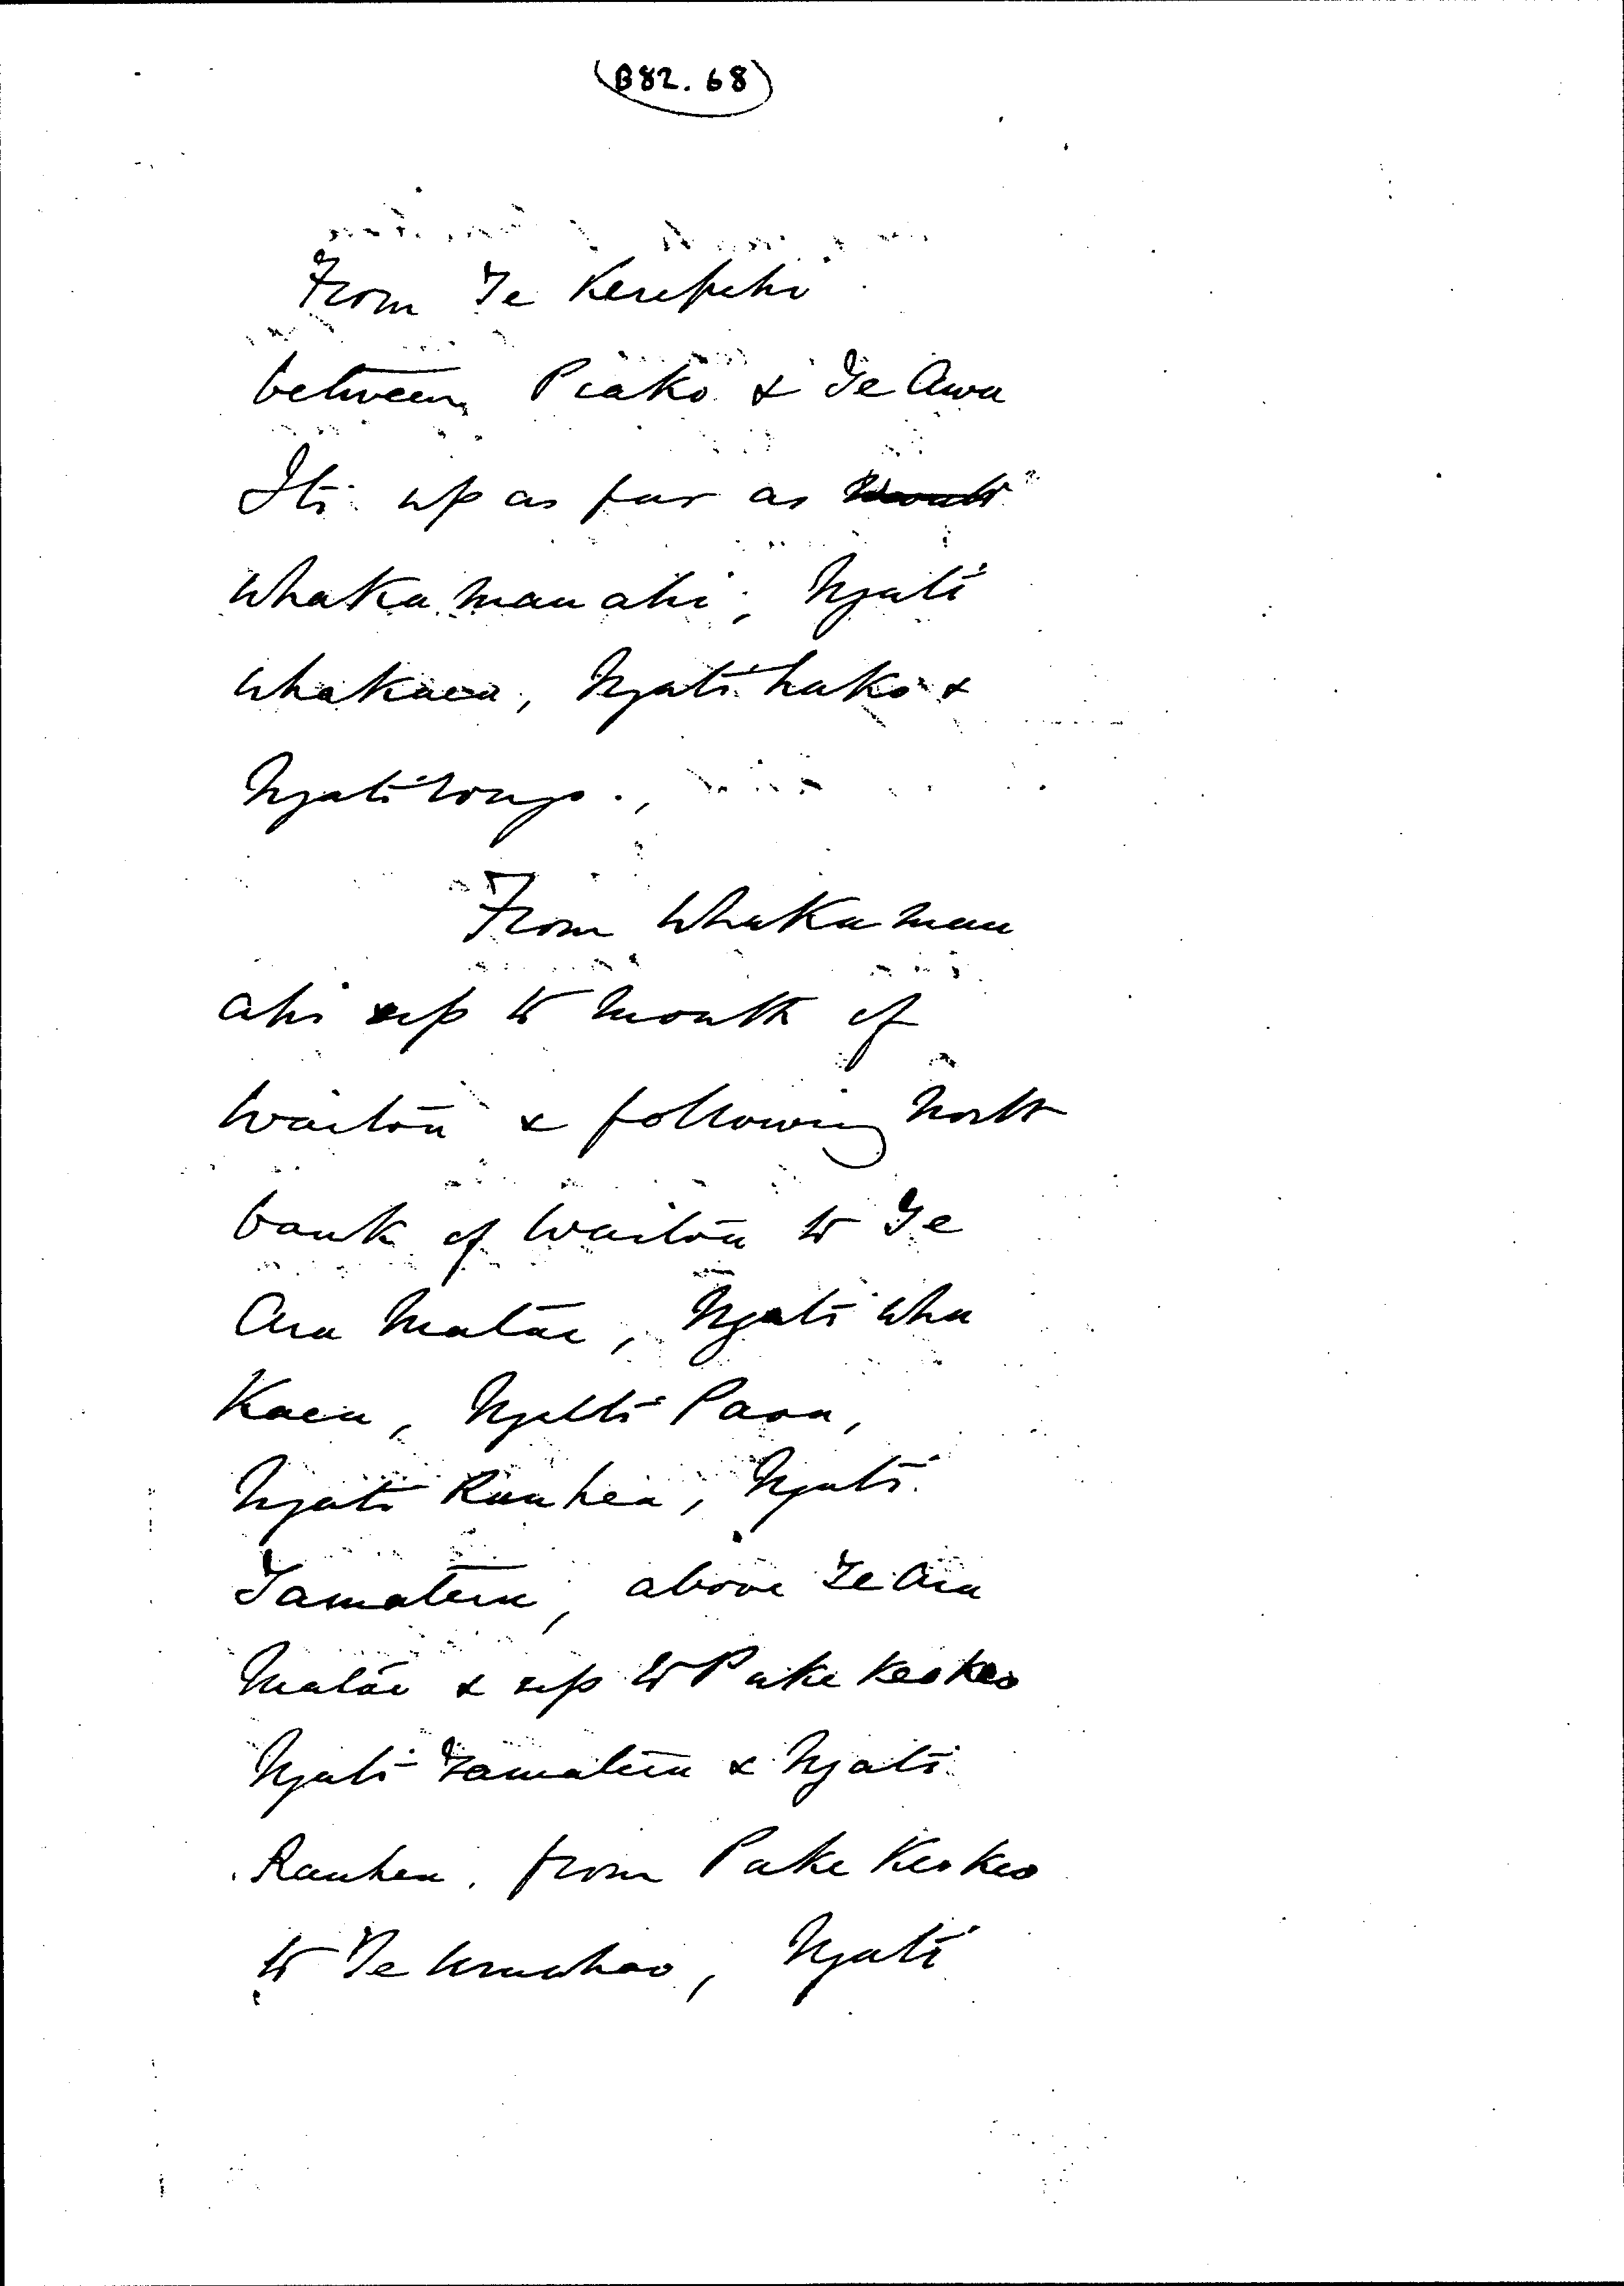 (B82.68)
From Te Kerepehi
between Piako & Te Awa
Iti up as far as
Whaka mau ahi; Ngati
Whakaea, Ngati hako &
Ngatitongo.,
From Whaka mau
ahi up to mouth of
Waitoa & following North
bank of Waitoa to Te
Ara Matae, Ngati Wha
Kaea, Ngati Paoa,
Ngati Rauhea, Ngati
Tamatera, above Te Ara
Matae & up to Puke keokeo
Ngati Tamatera & Ngati
Rauhea. from Puke Keokeo
to Te Uruwhao, Ngati